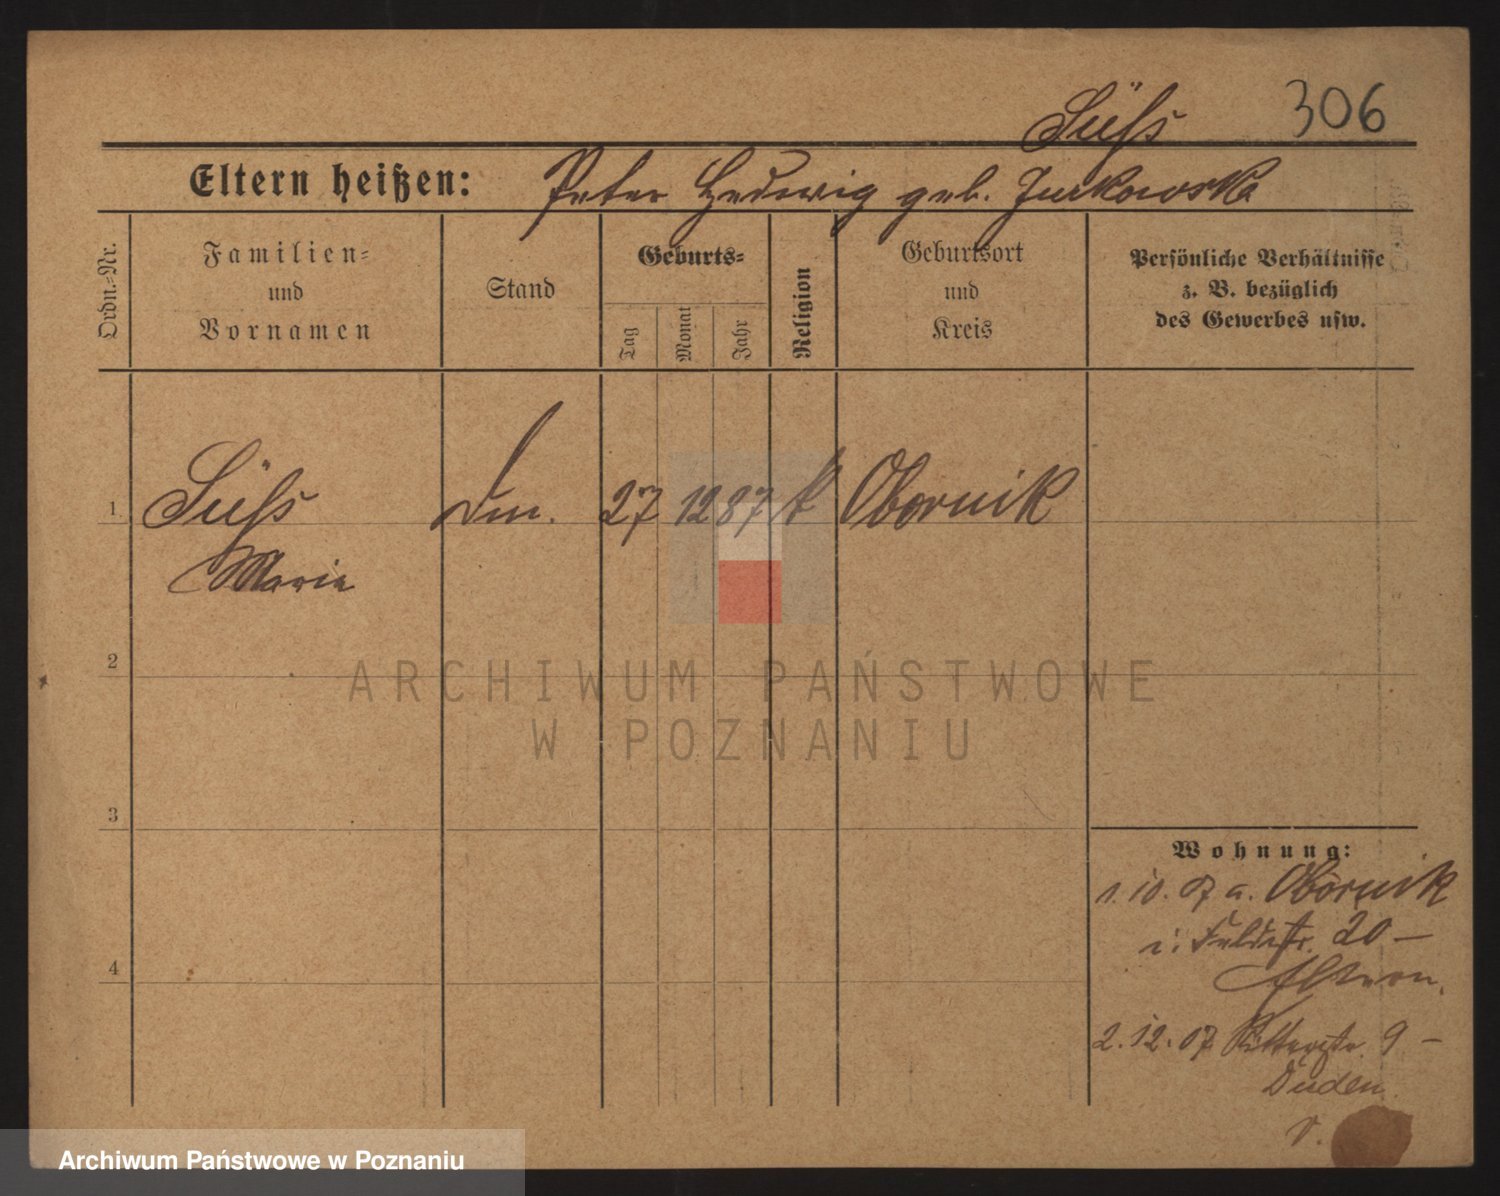 306
Süß
Eltern heißen: Peter Hedwig geb. Jurkowska
Ordn.-Nr.
Familien-
und
Vornamen
Stand
Geburts-
Tag
Monat
Jahr
Religion
Geburtsort
und
Kreis
Persönliche Verhältnisse
z. B. bezüglich
des Gewerbes usw.
1 Süß 27 12 87 k Obornik
Marie
2
ARCHIWUM PAŃSTWOWE
W POZNANIU
3
Wohnung:
1. 10. 07 a. Obornik
i. Feldstr. 20 –
Eltern.
4
2. 12. 07 Ritterstr. 9 –
Duden
v.
Archiwum Państwowe w Poznaniu